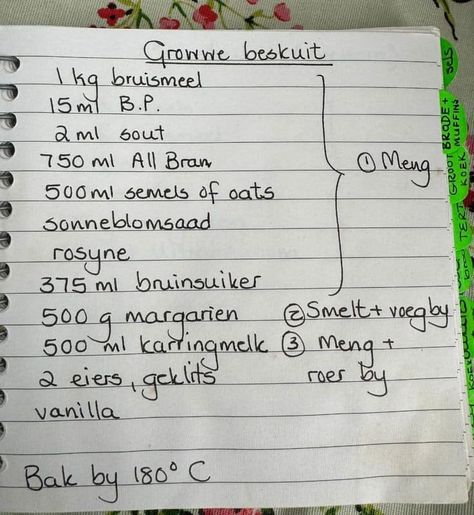 Growwe beskuit
1 kg bruismeel
15 ml B.P.
2 ml sout
750 ml All Bran
① Meng
500 ml semels of oats
sonneblomsaad
rosyne
375 ml bruinsuiker
500 g margarien ② Smelt + voeg by
500 ml karringmelk ③ Meng +
2 eiers, geklits roer by
vanilla
Bak by 180° C
SELS
BRODE +
MUFFINS
GROOT
KOEK
TERT